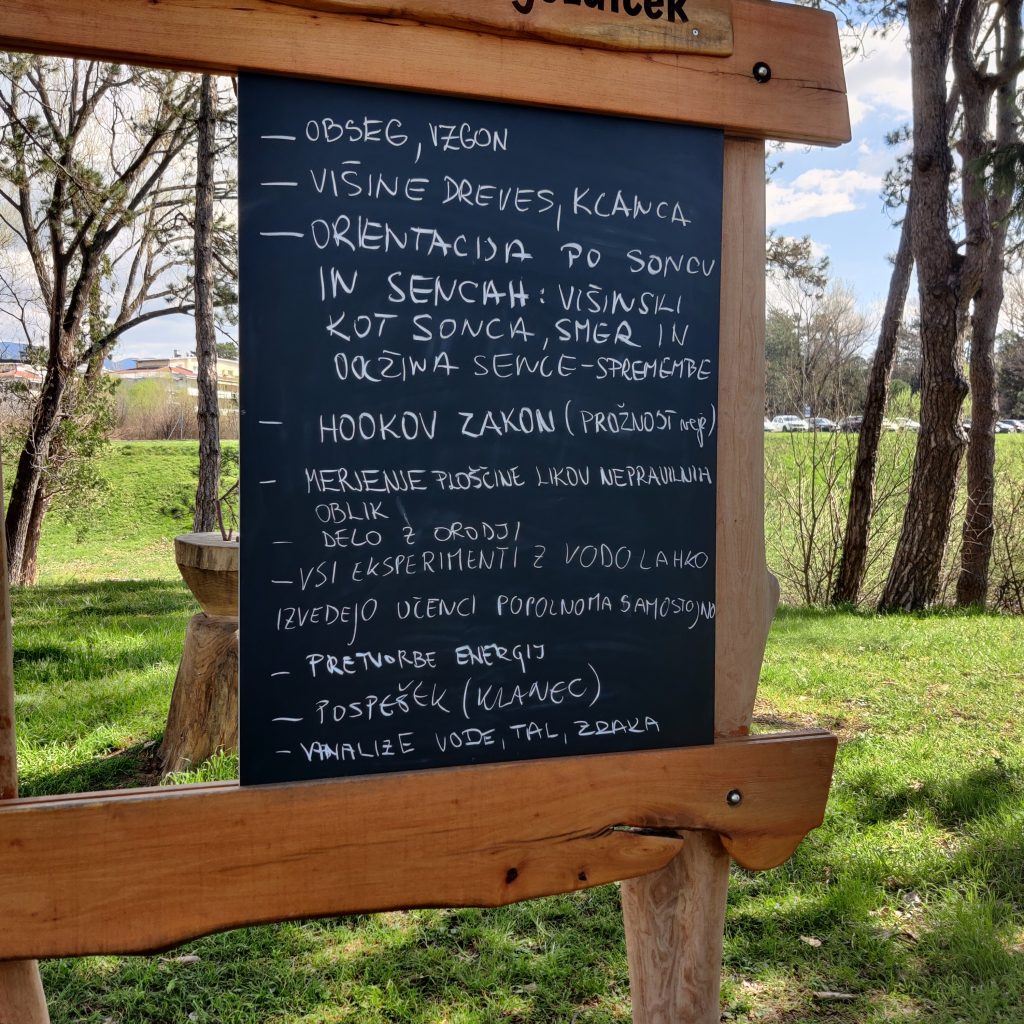 gozdiček
– OBSEG, VZGON
– VIŠINE DREVES, KLANCA
– ORIENTACIJA PO SONCU
IN SENCAH: VIŠINSKI
KOT SONCA, SMER IN
DOLŽINA SENCE-SPREMEMBE
– HOOKOV ZAKON (PROŽNOST veje)
– MERJENJE PLOŠČINE LIKOV NEPRAVILNIH
OBLIK
– DELO Z ORODJI
– VSI EKSPERIMENTI Z VODO LAHKO
IZVEDEJO UČENCI POPOLNOMA SAMOSTOJNO
– PRETVORBE ENERGIJ
– POSPEŠEK (KLANEC)
– ANALIZE VODE, TAL, ZRAKA